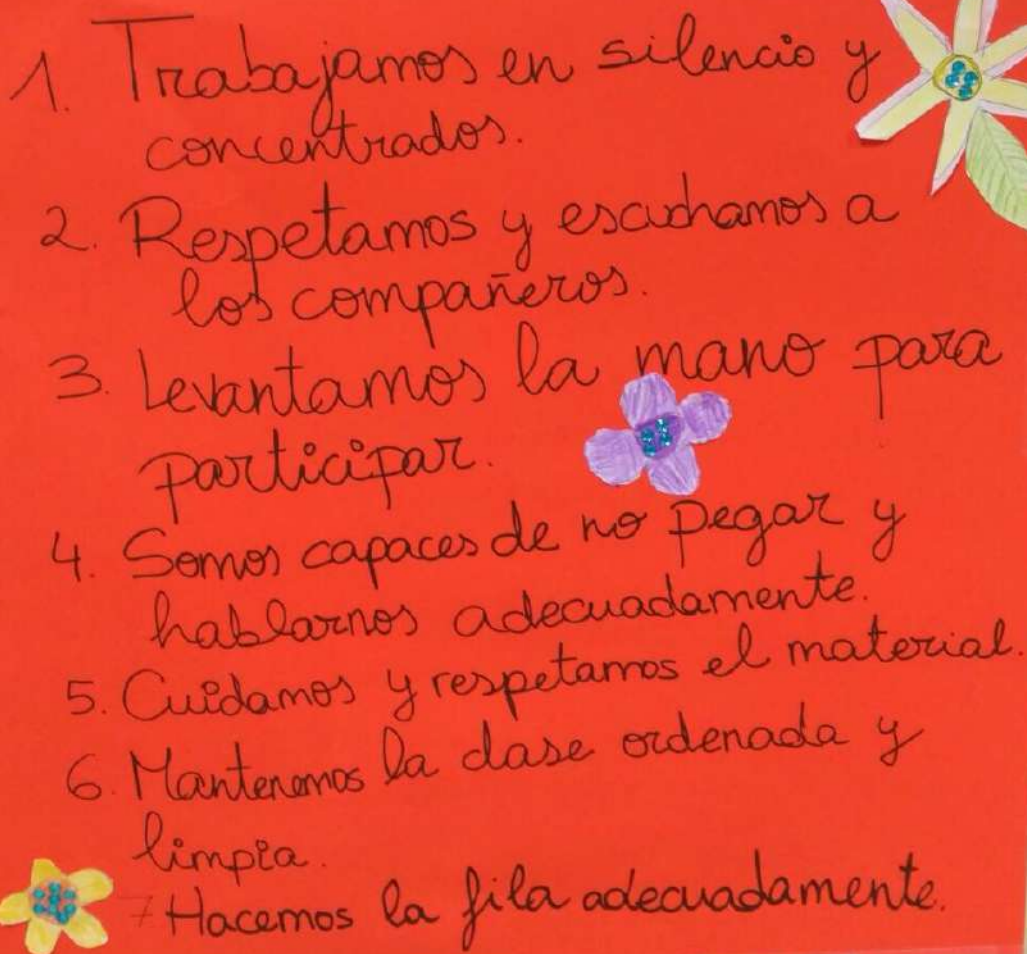 1. Trabajamos en silencio y
concentrados.
2. Respetamos y escuchamos a
los compañeros.
3. Levantamos la mano para
participar.
4. Somos capaces de no pegar y
hablarnos adecuadamente.
5. Cuidamos y respetamos el material.
6. Mantenemos la clase ordenada y
limpia.
7 Hacemos la fila adecuadamente.